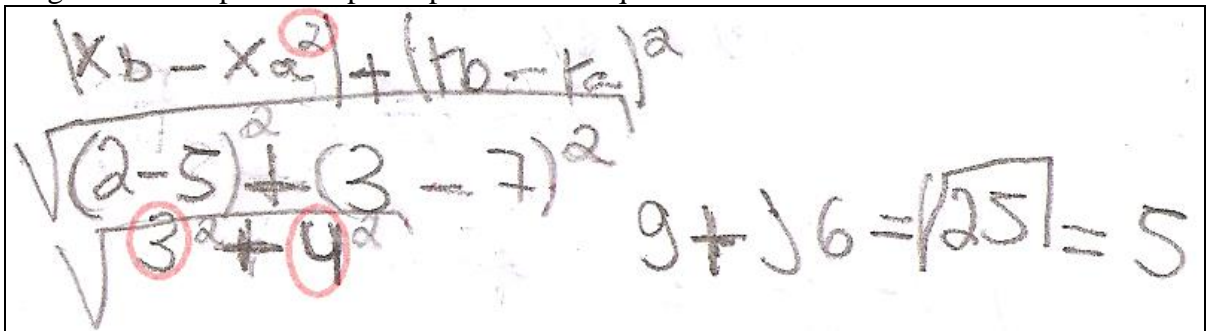 |Xb - Xa²) + (Yb - Ya)²
√(2-5)² + (3 - 7)²
√3² + 4²
9 + 16 = √25 = 5